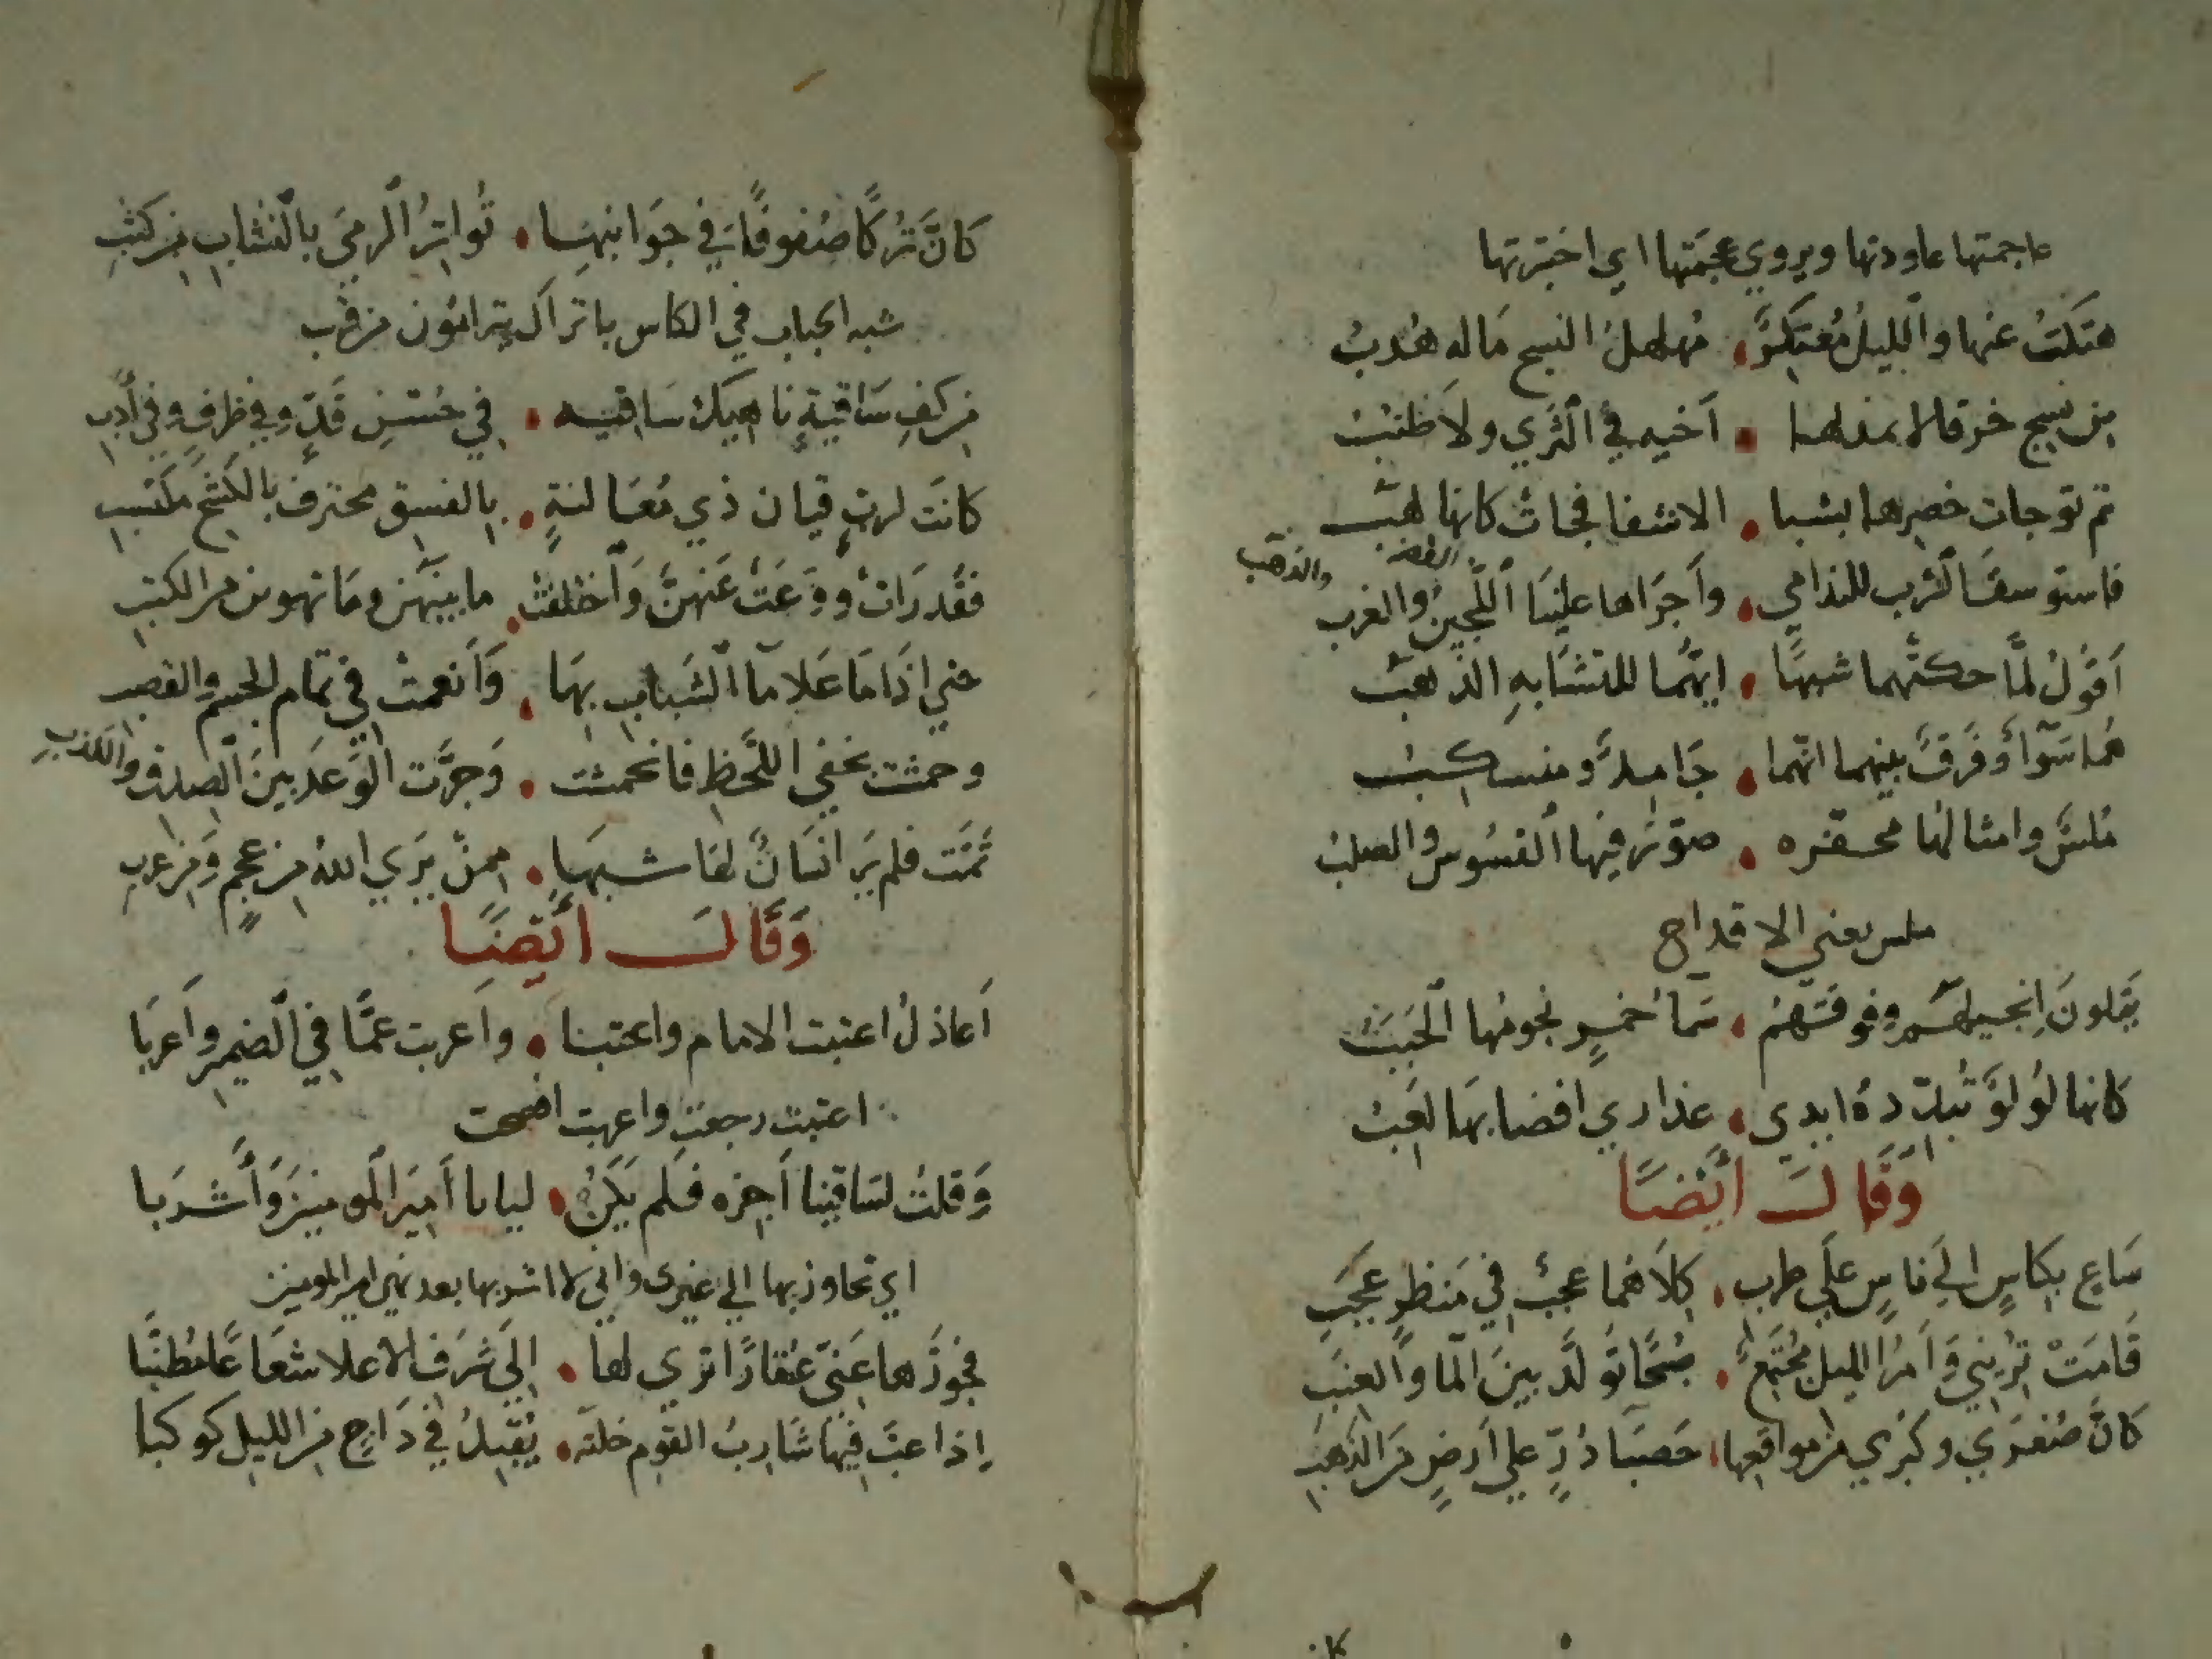 عاجمتها عاودتها ويروي عجمتها اي اختبرتها
هتكت عنها والليل معتكر • مهلهل النسج ماله هدب
من نسج خرقا لا • اخيه في الثري ولا طنب
ثم توجات خصرها بشبا • الاشفا فجات كانها لهب
فاستوسقت الشرب للندامي • واجراها علينا اللجين والغرب
الفضه والذهب
اقول لما حكتهما شبها • ايهما للتشابه الذهب
هما سوآ وفرق بينهما انهما • جامد ومنسكب
ملس وامثالها محفره • صور فيها القسوس والصلب
ملس يعني الاقداح
يتلون انجيلهم وفوقهم • سما خمر نجومها الحبب
كانها لولو تبدده ايدي • عذاري افضا بها لعب
وقال ايضا
ساع بكاس الي ناس علي طرب • كلاهما عجب في منظر عجب
قامت تريني وامر الليل مجتمع • صبحا تولد بين الما والعنب
كان صغري وكبري من مواقعها • حصبا در علي ارض من الذهب
كان
كان تركا صفوفا في جوانبها • تواتر الرمي بالنشاب من كثب
شبه الحباب في الكاس باتراك يترامون من قرب
من كف ساقية ناهيك ساقيه • في حسن قد وفي ظرف وفي ادب
كانت لرب قيان ذي مغالنة • بالفسق محترف بالكشح مكتسب
فقد رات ووعت عنهن واختلفت • ما بينهن وما تهوين من الكتب
حتي اذا ما علا مآ الشباب بها • وانعمت في تمام الجسم والقصب
وحمشت بخفي اللحظ فانحمشت • وجرت الوعد بين الصدق والكذب
تمت فلم ير انسان لها شبها • ممن يري الله من عجم ومن عرب
وقال ايضا
اعاذل اعتبت الامام واعتبا • واعربت عما في الضمير واعربا
اعتبت رجعت واعربت افصحت
وقلت لساقينا اجزه فلم يكن • ليابا امير المومنين واشربا
اي تجاوز بها الي غيري واني لا اشربها بعد نهي امير المومنين
فجوزها عني عقارا تري لها • الي شرف الاعلا شعاعا مطنبا
اذا عب فيها شارب القوم خلته • يقبل في داج من الليل كوكبا